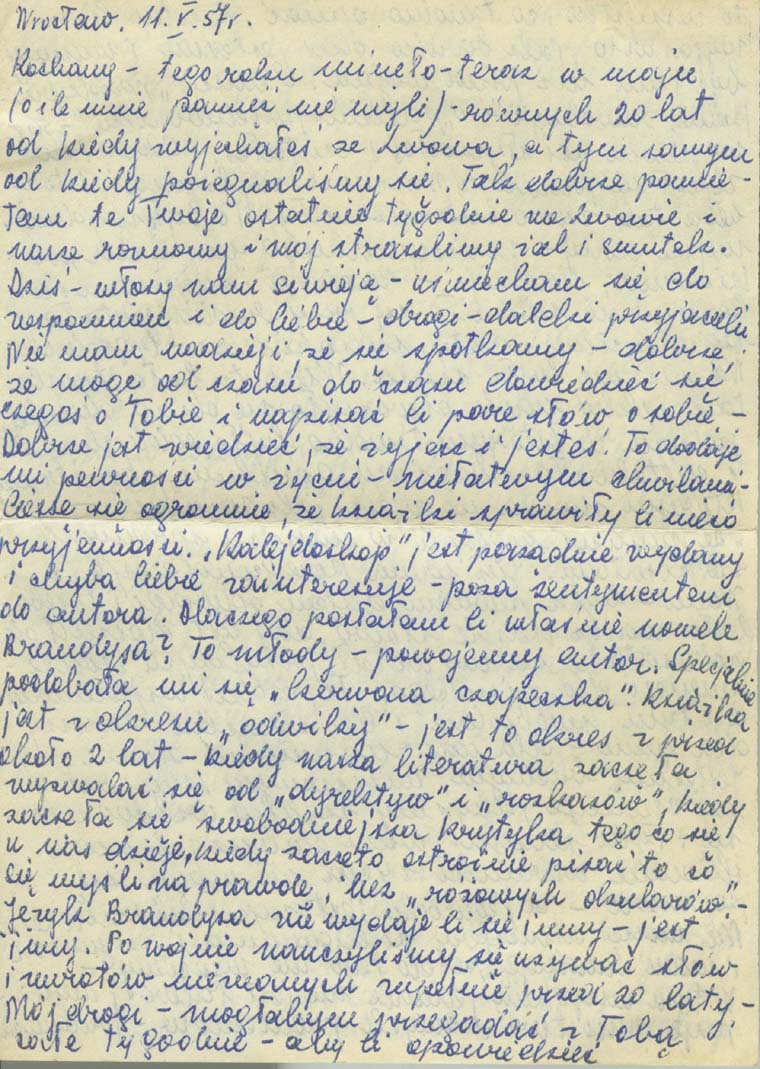 Wrocław, 11.V.57r.
Kochany – tego roku minęło – teraz w maju
(o ile mnie pamięć nie myli) – równych 20 lat
od kiedy wyjechałeś ze Lwowa, a tym samym
od kiedy pożegnaliśmy się. Tak dobrze pamię-
tam te Twoje ostatnie tygodnie we Lwowie i
nasze rozmowy i mój straszliwy żal i smutek.
Dziś – włosy nam siwieją – uśmiecham się do
wspomnień i do Ciebie – drogi – daleki przyjacielu.
Nie mam nadzieji, że się spotkamy – dobrze,
że mogę od czasu do czasu dowiedzieć się
czegoś o Tobie i napisać Ci parę słów o sobie –
Dobrze jest wiedzieć, że żyjesz i jesteś. To dodaje
mi pewności w życiu – niełatwym chwilami –
Cieszę się ogromnie, że książki sprawiły Ci nieco
przyjemności. „Kalejdoskop” jest porządnie wydany
i chyba Ciebie zainteresuje – poza sentymentem
do autora. Dlaczego posłałam Ci właśnie nowele
Brandysa? To młody – powojenny autor. Specjalnie
podobała mi się „Czerwona czapeczka”. Książka
jest z okresu „odwilży” – jest to okres z przed
około 2 lat – kiedy nasza literatura zaczęła
wyzwalać się od „dyrektyw” i „rozkazów”, kiedy
zaczęła się swobodniejsza krytyka tego co się
u nas dzieje, kiedy zaczęto ostrożnie pisać to co
się myśli na prawdę, i bez „różowych okularów”. –
Język Brandysa nie wydaje Ci się inny – jest
inny. Po wojnie nauczyliśmy się używać słów
i zwrotów nieznanych zupełnie przed 20 laty. –
Mój drogi – mogłabym przegadać z Tobą
całe tygodnie – aby Ci opowiedzieć